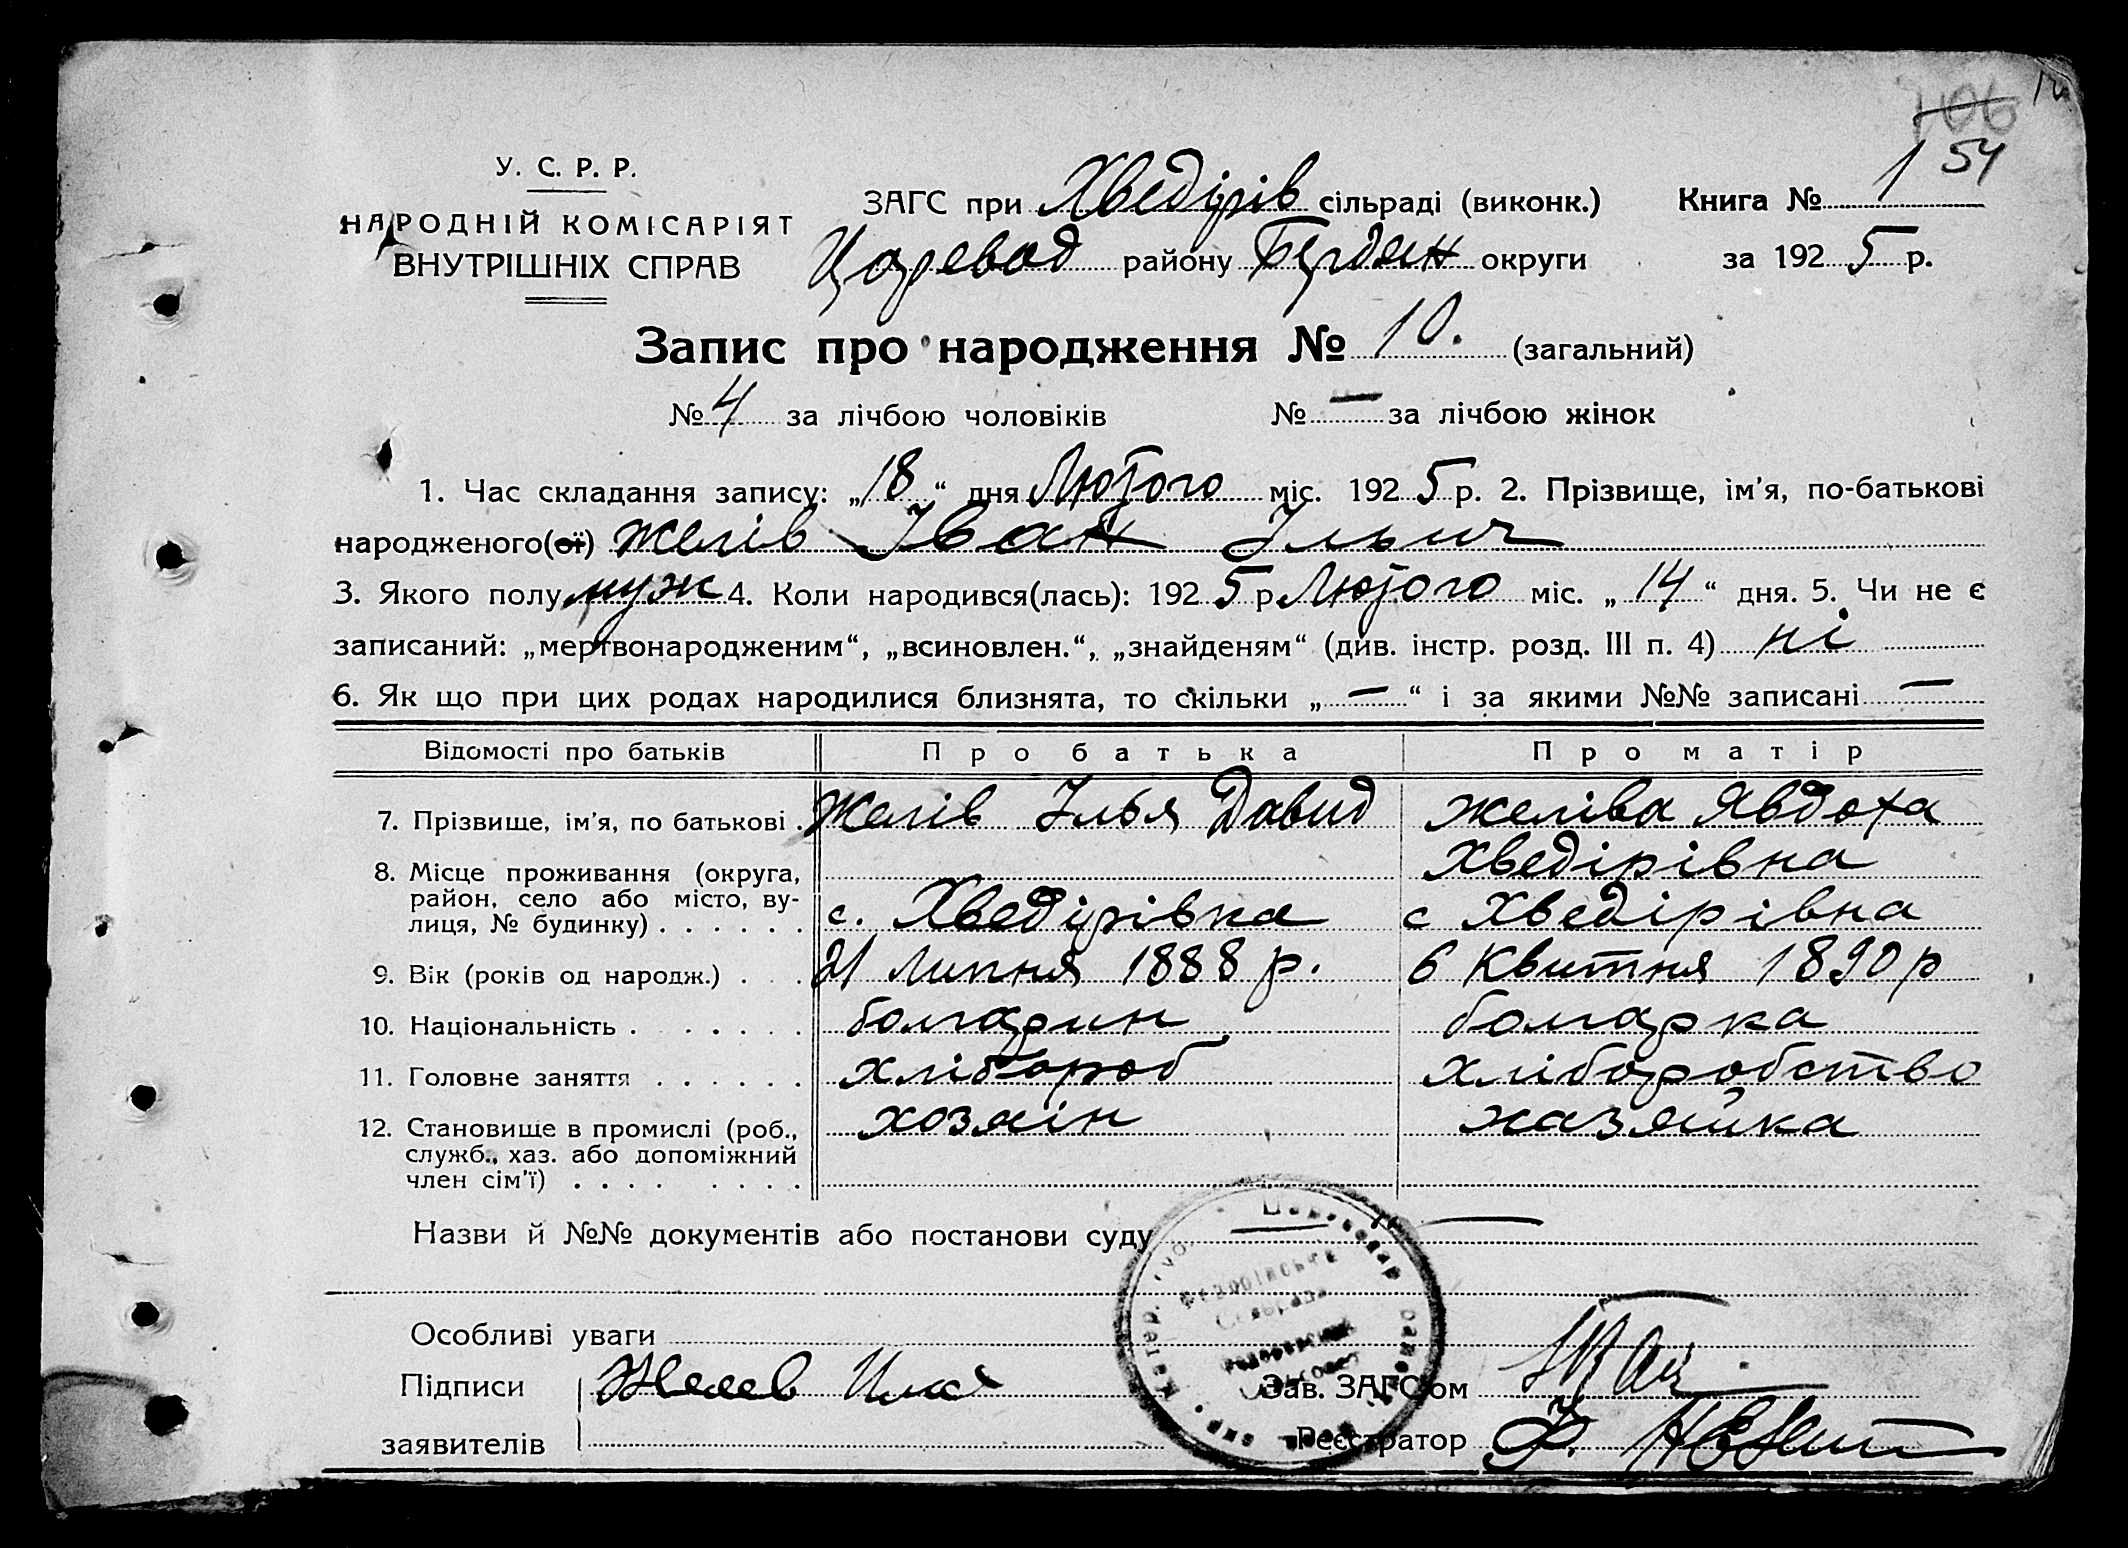 54
У. С. Р. Р.
НАРОДНІЙ КОМІСАРІЯТ
ВНУТРІШНІХ СПРАВ
ЗАГС при Хведірів сільраді (виконк.) Книга № 1
Царевод району Бердян округи за 1925 р.
Запис про народження № 10. (загальний)
№ 4 за лічбою чоловіків № — за лічбою жінок
1. Час складання запису: „18“ дня Лютого міс. 1925 р. 2. Прізвище, ім'я, по-батькові
народженого(ої) Желів Іван Ільич
3. Якого полу муж 4. Коли народився(лась): 1925 р Лютого міс. „14“ дня. 5. Чи не є
записаний: „мертвонародженим“, „всиновлен.“, „знайденям“ (див. інстр. розд. III п. 4) ні
6. Як що при цих родах народилися близнята, то скільки „—“ і за якими №№ записані —
Відомості про батьків Про батька Про матір
7. Прізвище, ім'я, по батькові . Желів Ілья Давид Желіва Явдоха
Хведірівна
8. Місце проживання (округа,
район, село або місто, ву-
лиця, № будинку) . . . . . . с. Хведірівка с Хведірівна
9. Вік (років од народж.) . . . 21 Липня 1888 р. 6 Квитня 1890 р
10. Національність . . . . . . болгарин болгарка
11. Головне заняття . . . . . . хлібороб хліборобство
12. Становище в промислі (роб., хозяін хазяйка
служб., хаз. або допоміжний
член сім'ї) . . . . . . . .
Назви й №№ документів або постанови суду —
Особливі уваги
Підписи Желев Илія Зав. ЗАГС'ом
заявителів Реєстратор Ф.